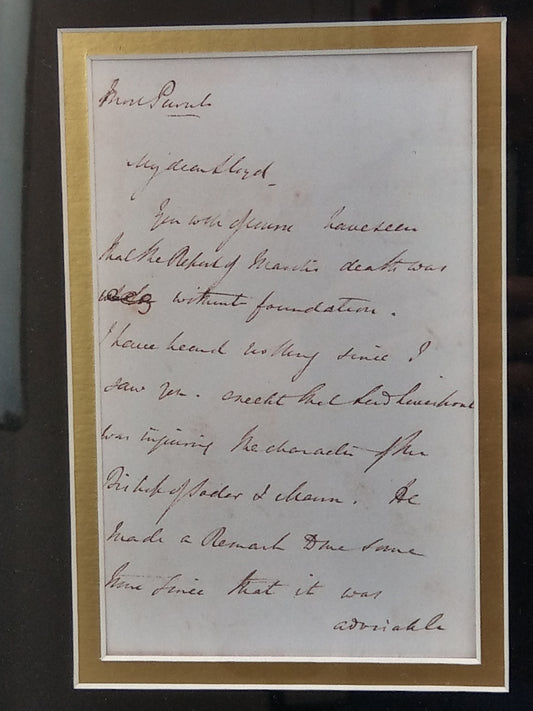 Most Private
My dear Lloyd
You will of course have seen
that the Report of Marsh's death was
without foundation.
I have heard nothing since I
saw you. except that Lord Liverpool
was inquiring the character of the
Bishop of Sodor & Mann. He
made a Remark to me some
time since that it was
advisable